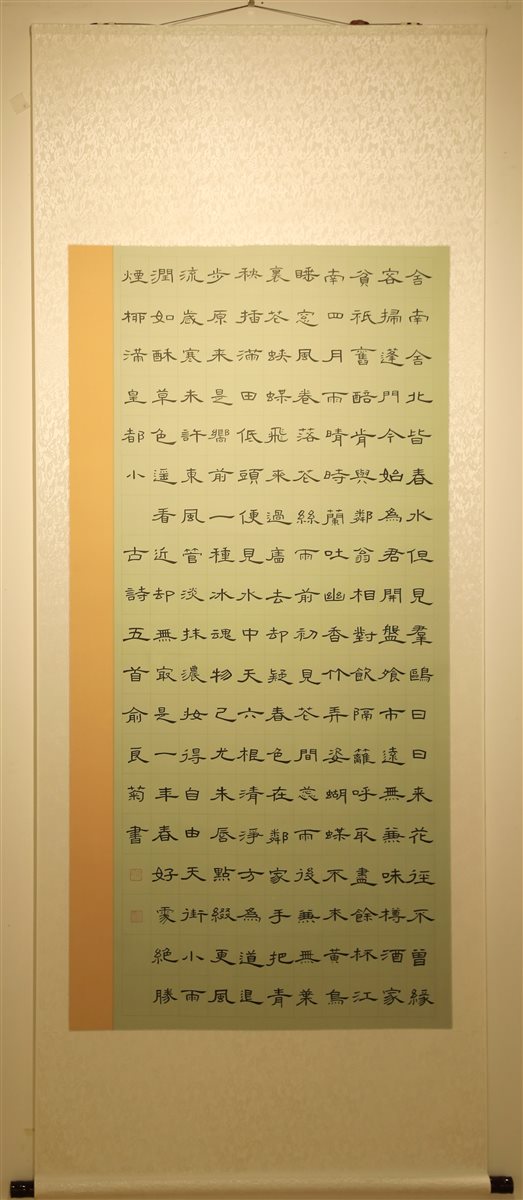 舍南舍北皆春水但見羣鷗日日来花徑不曾緣
客掃蓬門今始為君開盤飧市遠無兼味樽酒家
貧衹舊醅肯與鄰翁相對飲隔籬呼取盡餘杯江
南四月雨晴時蘭吐幽香竹弄姿蝴蝶不来黃鳥
睡窓風卷落花絲雨前初見花間蕊雨後兼無葉
裏花蛺蝶飛来過廧去却疑春色在鄰家手把青
秧插滿田低頭便見水中天六根清淨方為道退
步原来是嚮前一種冰魂物已尤朱唇點綴更風
流歲寒未許東風管淡抹濃妝得自由天街小雨
潤如酥草色遥看近却無最是一年春好處絕勝
煙栁滿皇都小 古詩五首俞良菊書